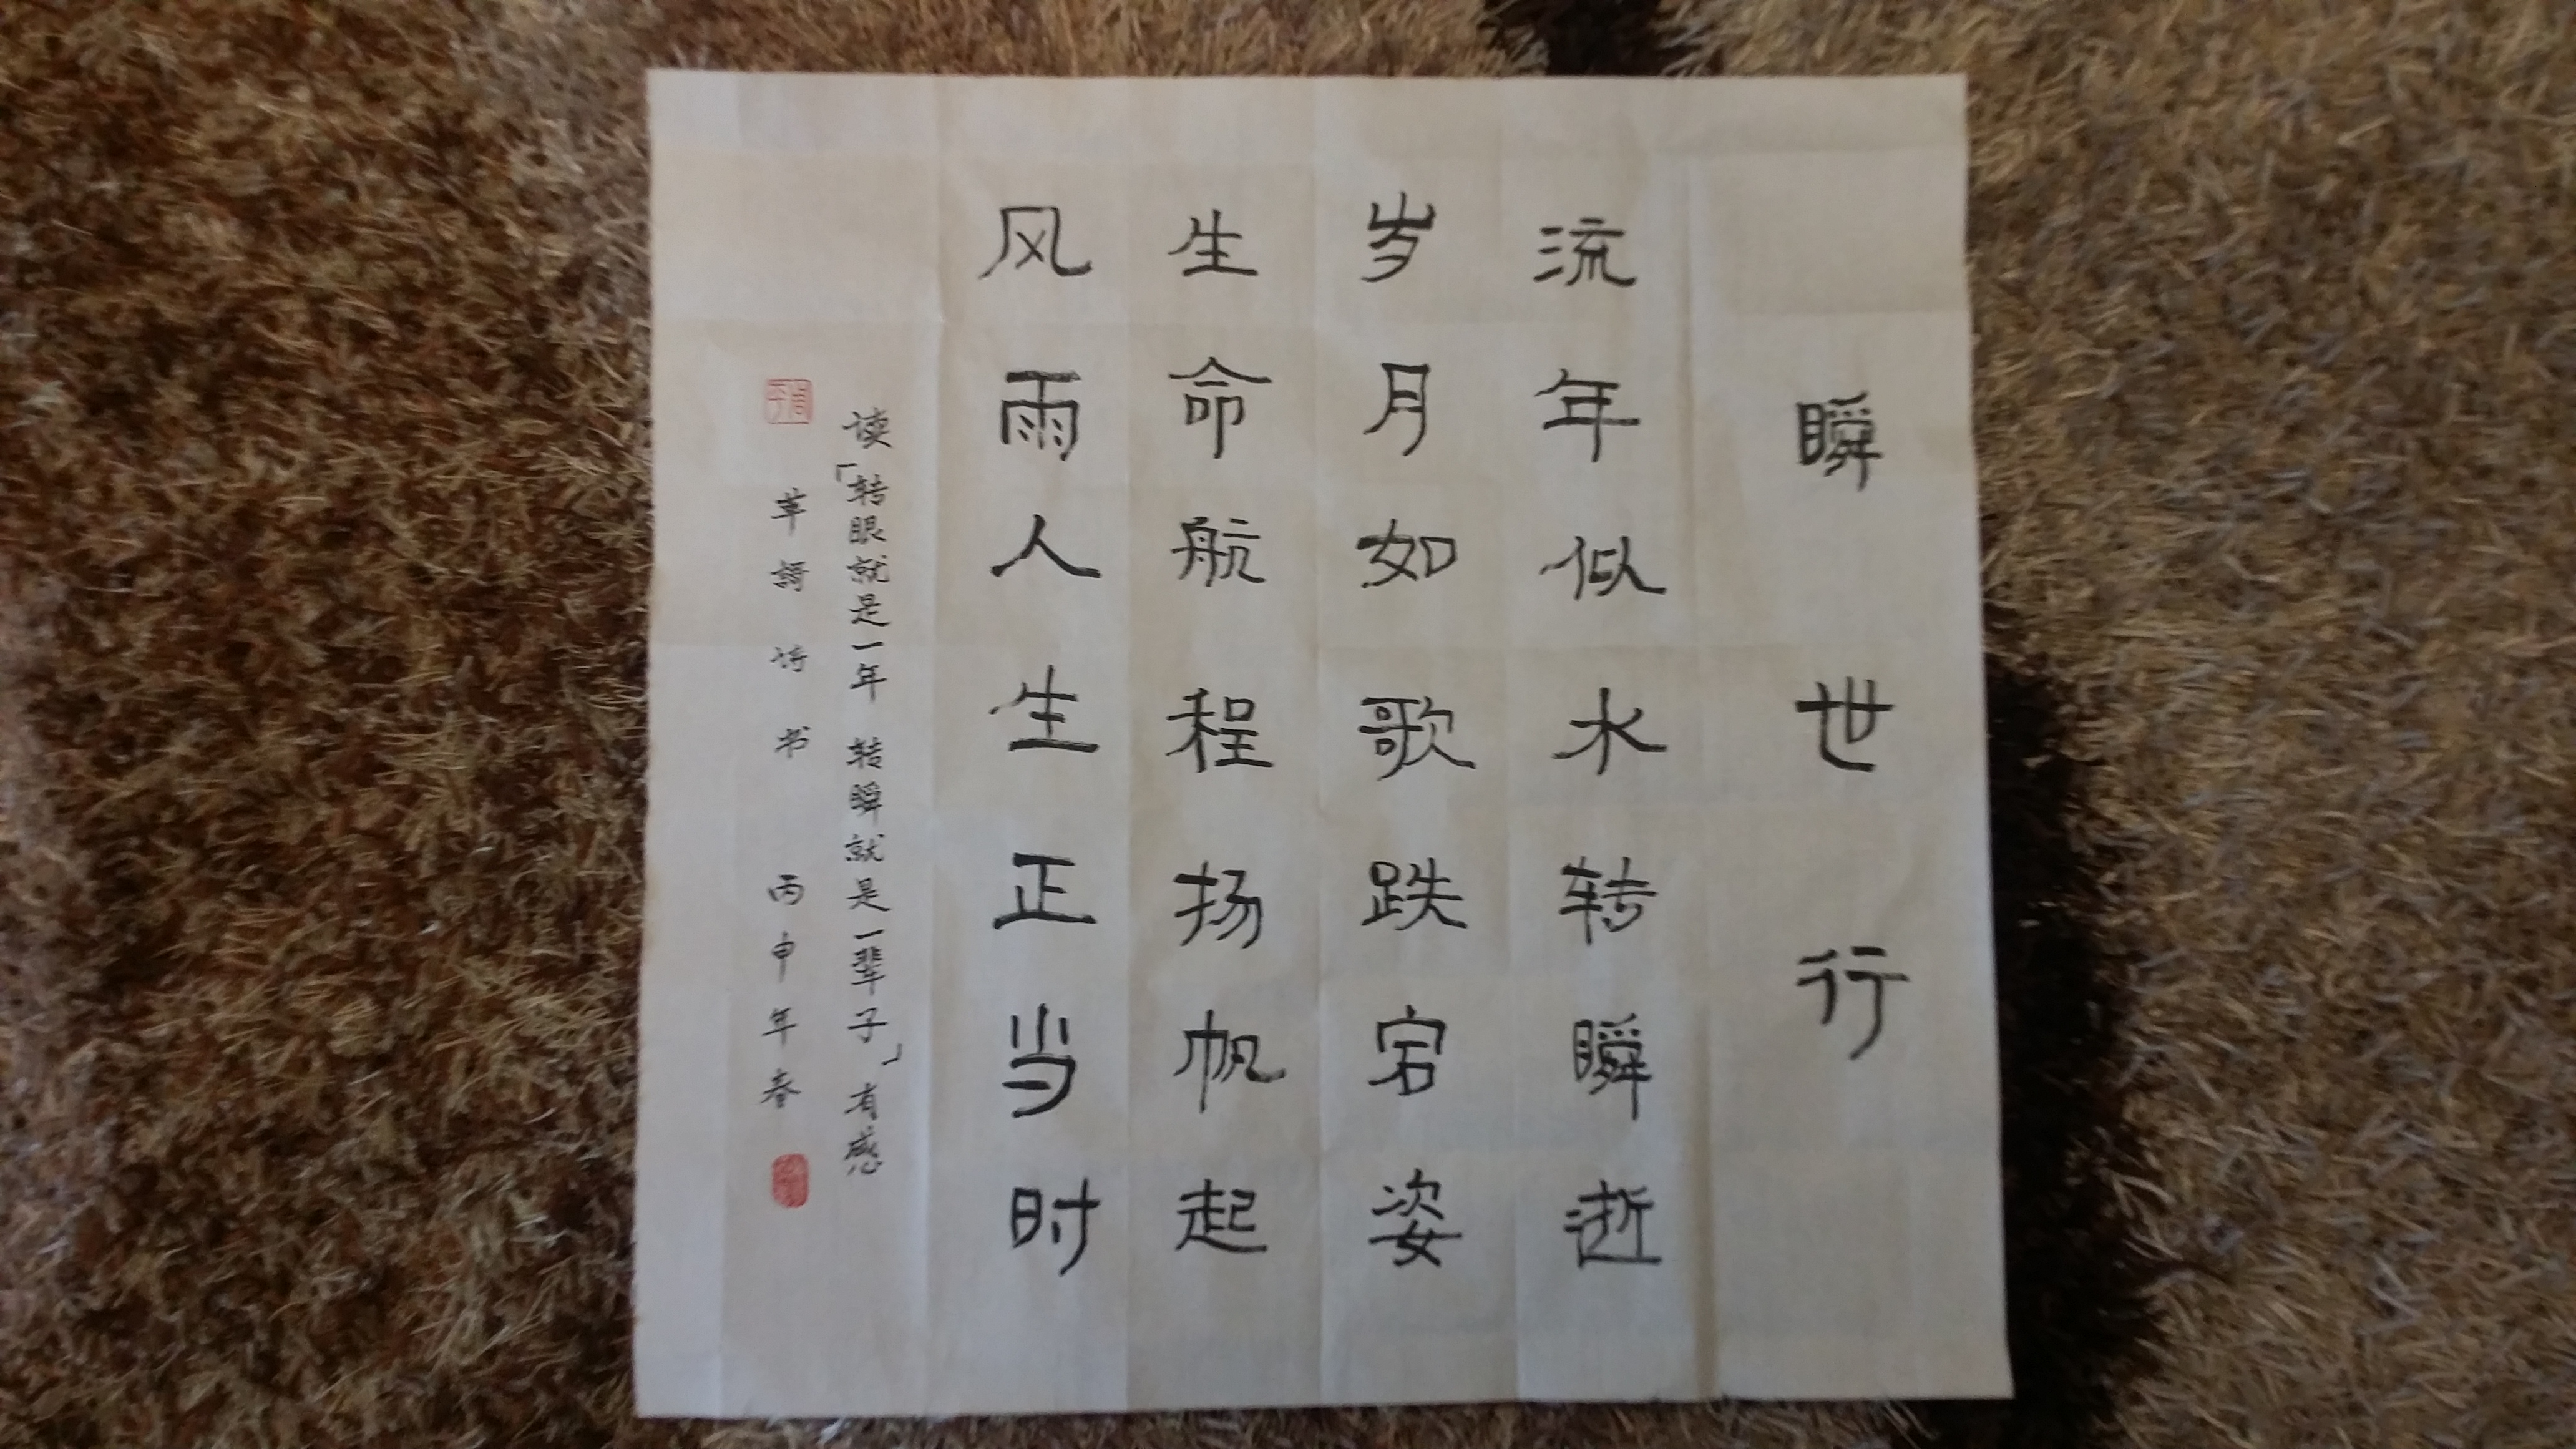 瞬世行
流年似水转瞬逝
岁月如歌跌宕姿
生命航程扬帆起
风雨人生正当时
读「转眼就是一年 转瞬就是一辈子」有感
苇謌诗书 丙申年春